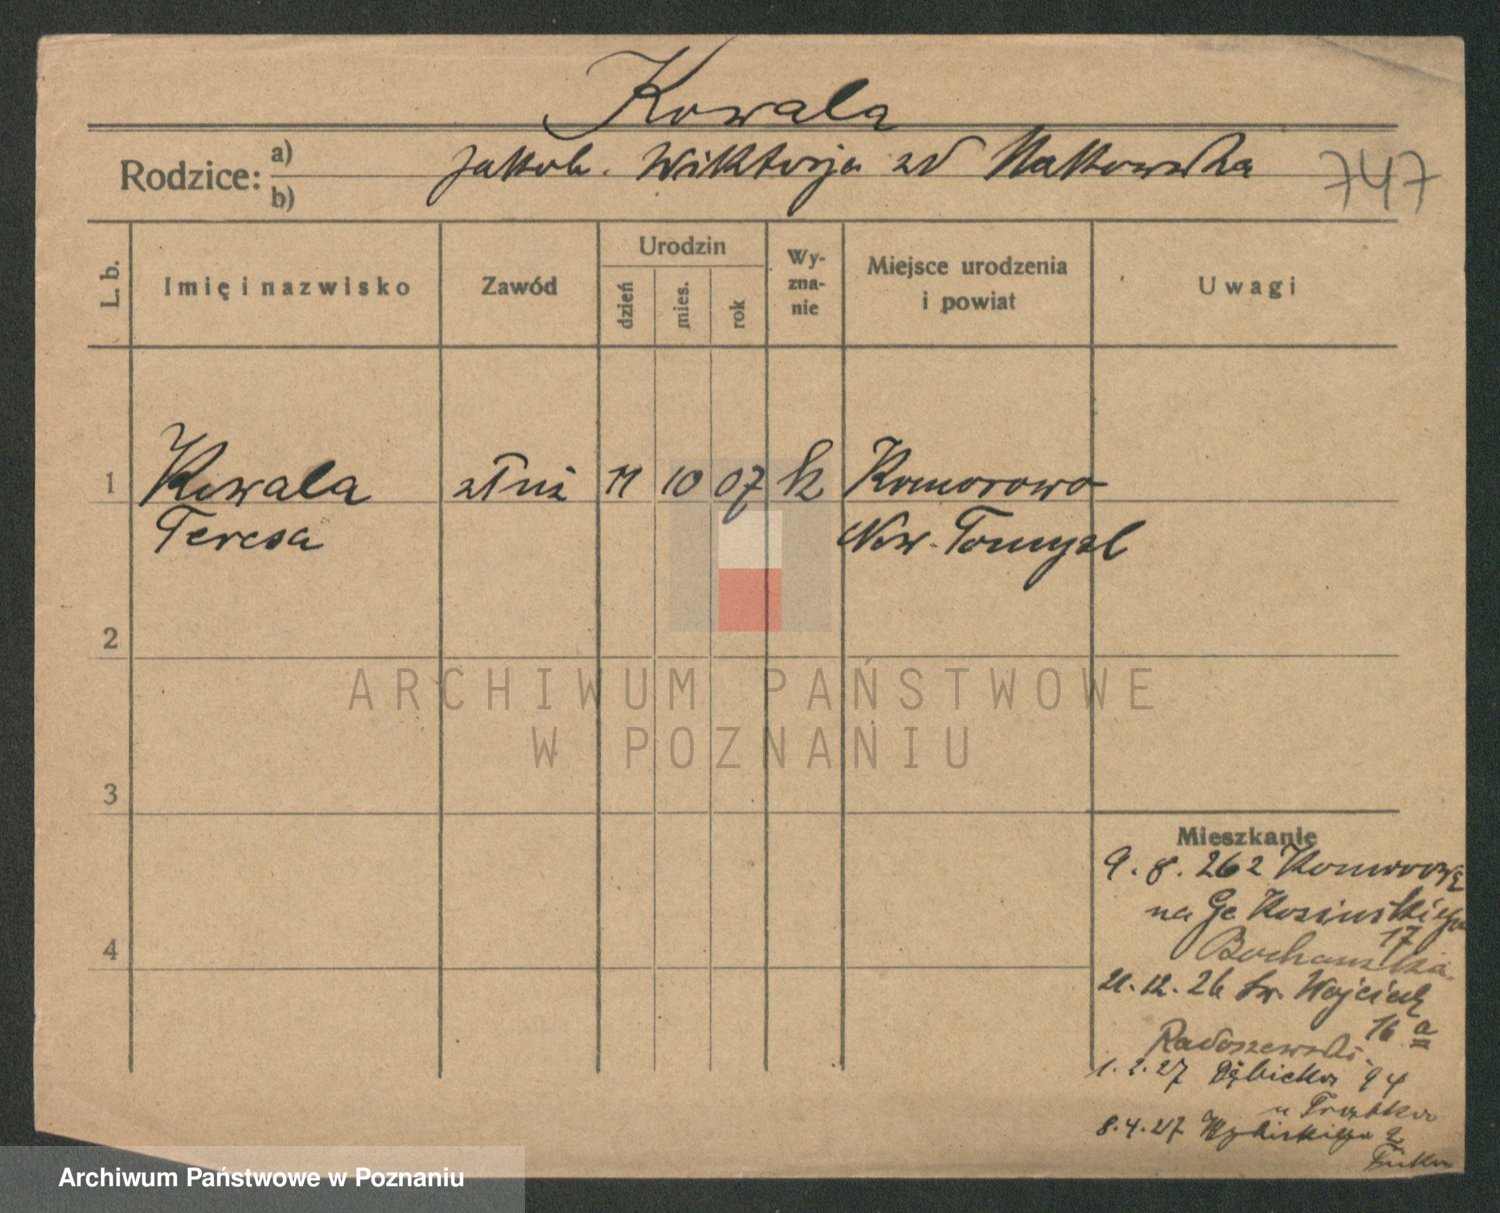 Kowala
Rodzice: a) b) Jakob. Wiktorja zd Natkowska
747
L. b.
Imię i nazwisko
Zawód
Urodzin
dzień
mies.
rok
Wy-
zna-
nie
Miejsce urodzenia
i powiat
Uwagi
1 Kowala służ 11 10 07 k Komorowo
Teresa Now. Tomyśl
2
ARCHIWUM PAŃSTWOWE
W POZNANIU
3
Mieszkanie
9. 8. 26 z Komorowa
na Ge Kosińskiego
17
4
21. 12. 26 św. Wojciech
16 a
Radoszewski
1. 2. 27 Dębicka 94
8. 4. 27 2
Archiwum Państwowe w Poznaniu